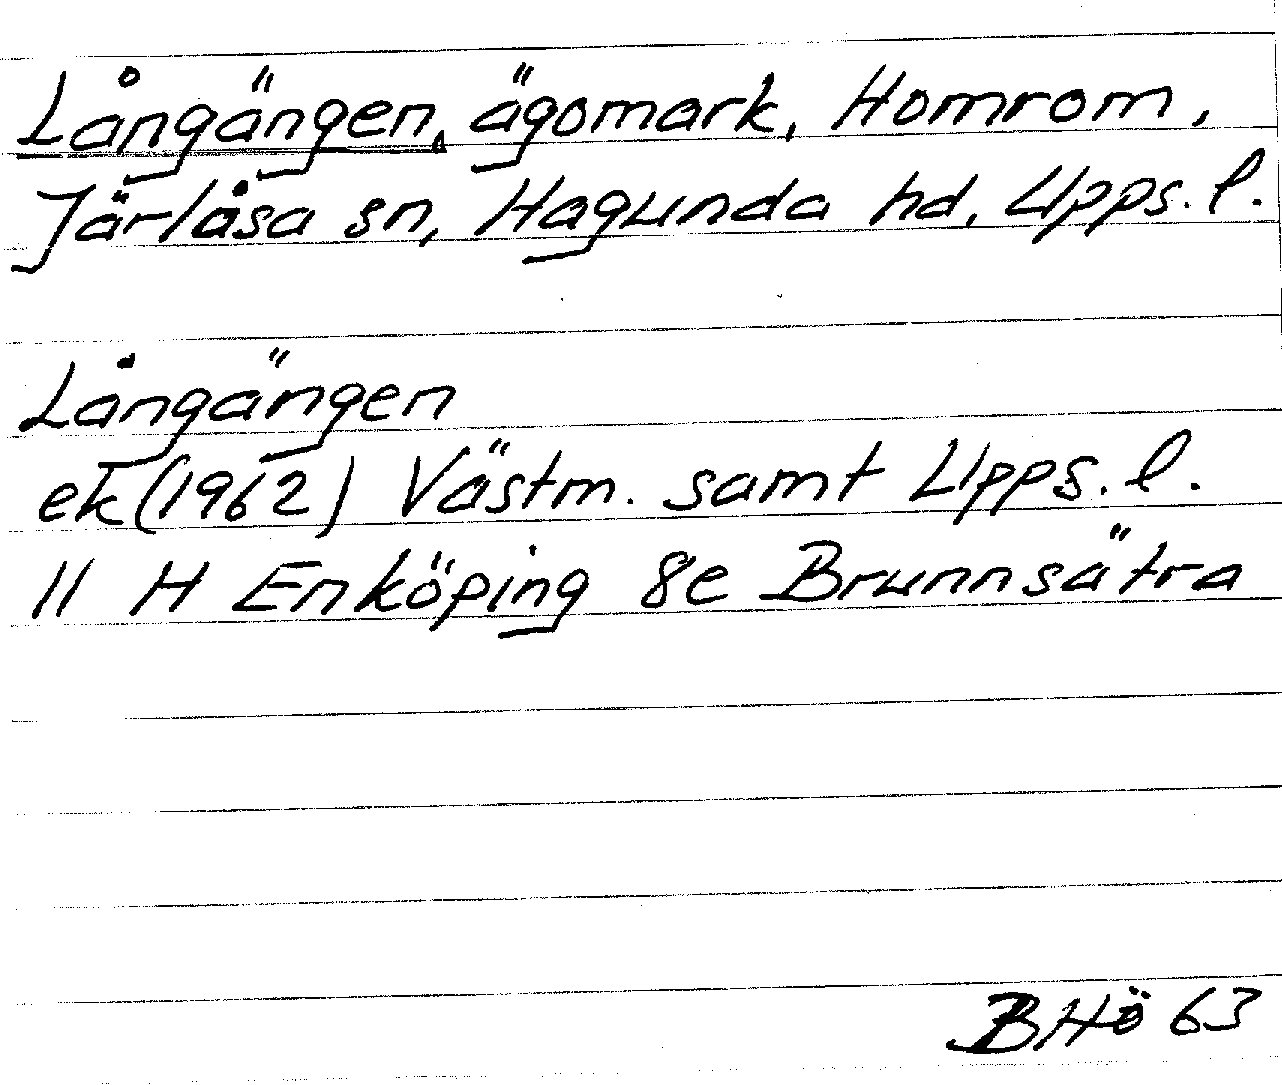 Långängen, ägomark, Homrom,
Järlåsa sn, Hagunda hd, Upps. l.
Långängen
ek (1962) Västm. samt Upps. l.
11 H Enköping 8e Brunnsätra
BHö 63